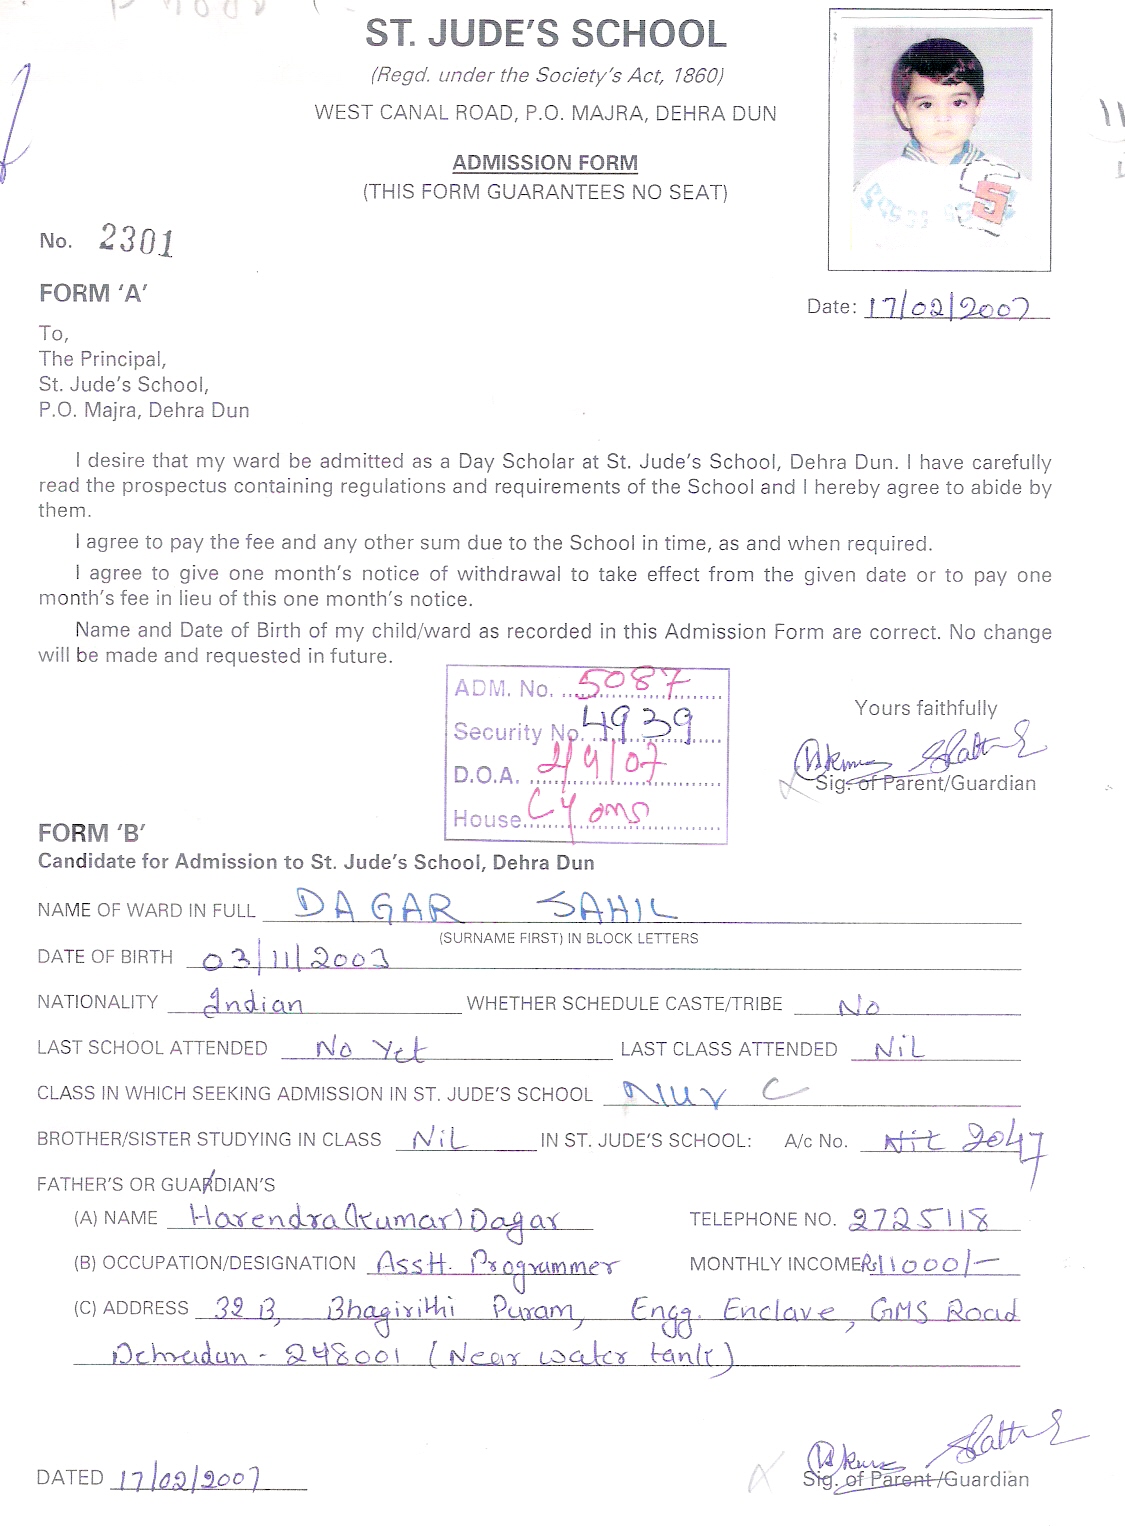 ST. JUDE'S SCHOOL
(Regd. under the Society's Act, 1860)
WEST CANAL ROAD, P.O. MAJRA, DEHRA DUN
ADMISSION FORM
(THIS FORM GUARANTEES NO SEAT)
No. 2301
FORM 'A'
Date: 17/02/2007
To,
The Principal,
St. Jude's School,
P.O. Majra, Dehra Dun
I desire that my ward be admitted as a Day Scholar at St. Jude's School, Dehra Dun. I have carefully
read the prospectus containing regulations and requirements of the School and I hereby agree to abide by
them.
I agree to pay the fee and any other sum due to the School in time, as and when required.
I agree to give one month's notice of withdrawal to take effect from the given date or to pay one
month's fee in lieu of this one month's notice.
Name and Date of Birth of my child/ward as recorded in this Admission Form are correct. No change
will be made and requested in future.
ADM. No. 5087
Security No. 4939
D.O.A. 2/4/07
House
Yours faithfully
Sig. of Parent/Guardian
FORM 'B'
Candidate for Admission to St. Jude's School, Dehra Dun
NAME OF WARD IN FULL DAGAR SAHIL
(SURNAME FIRST) IN BLOCK LETTERS
DATE OF BIRTH 03/11/2003
NATIONALITY Indian WHETHER SCHEDULE CASTE/TRIBE No
LAST SCHOOL ATTENDED No Yet LAST CLASS ATTENDED NiL
CLASS IN WHICH SEEKING ADMISSION IN ST. JUDE'S SCHOOL NUR C
BROTHER/SISTER STUDYING IN CLASS NiL IN ST. JUDE'S SCHOOL: A/c No. Nil 2047
FATHER'S OR GUARDIAN'S
(A) NAME Harendra (Kumar) Dagar TELEPHONE NO. 2725118
(B) OCCUPATION/DESIGNATION Asstt. Programmer MONTHLY INCOME Rs 11000/-
(C) ADDRESS 32 B, Bhagirithi Puram, Engg. Enclave, GMS Road
Dehradun - 248001 (Near water tank)
DATED 17/02/2007
Sig. of Parent/Guardian